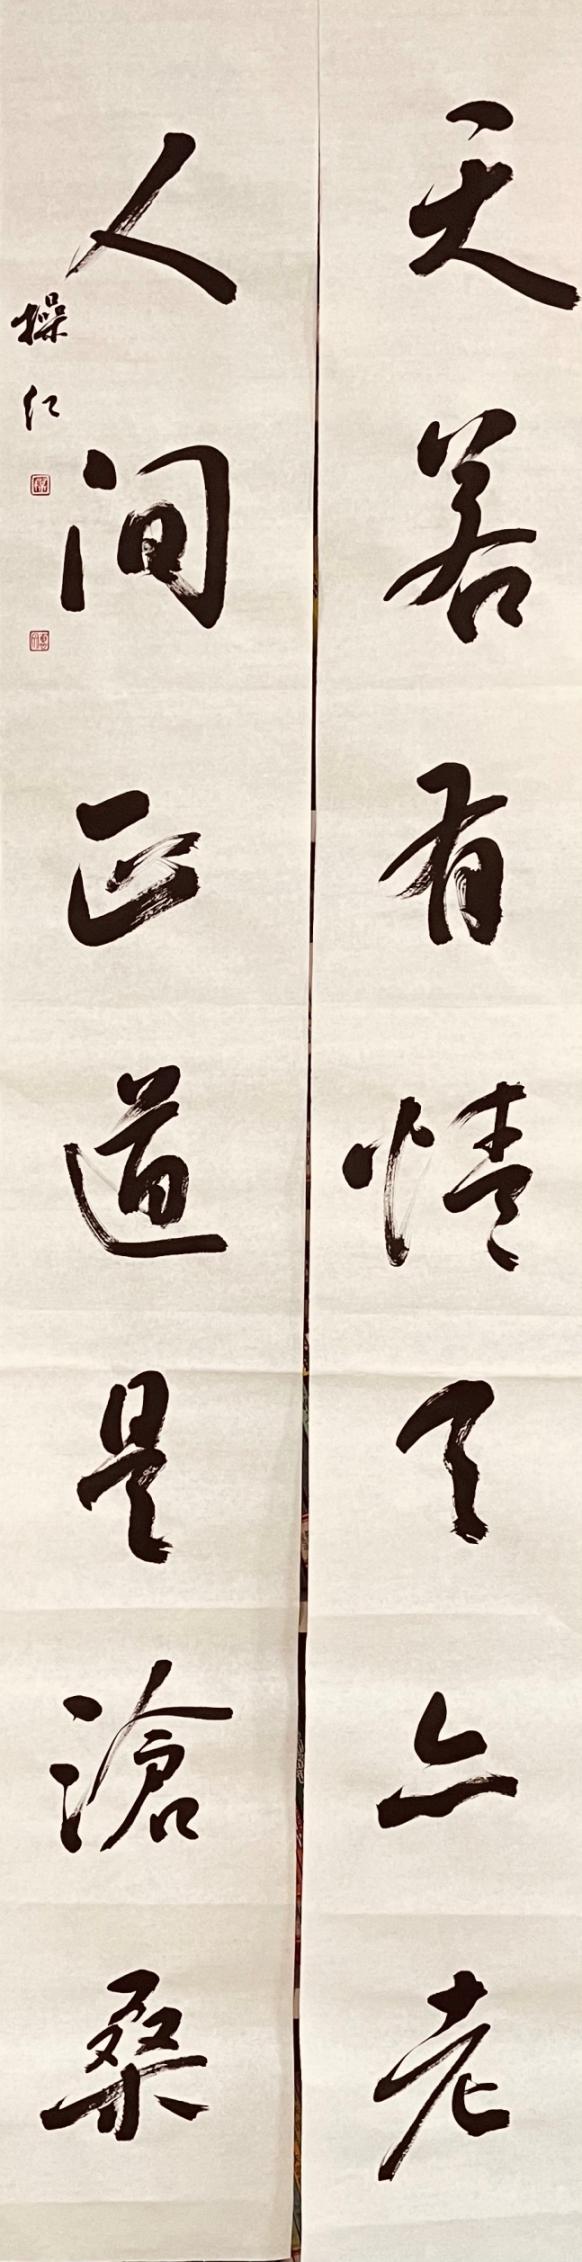 天若有情天亦老
人间正道是滄桑
操仁